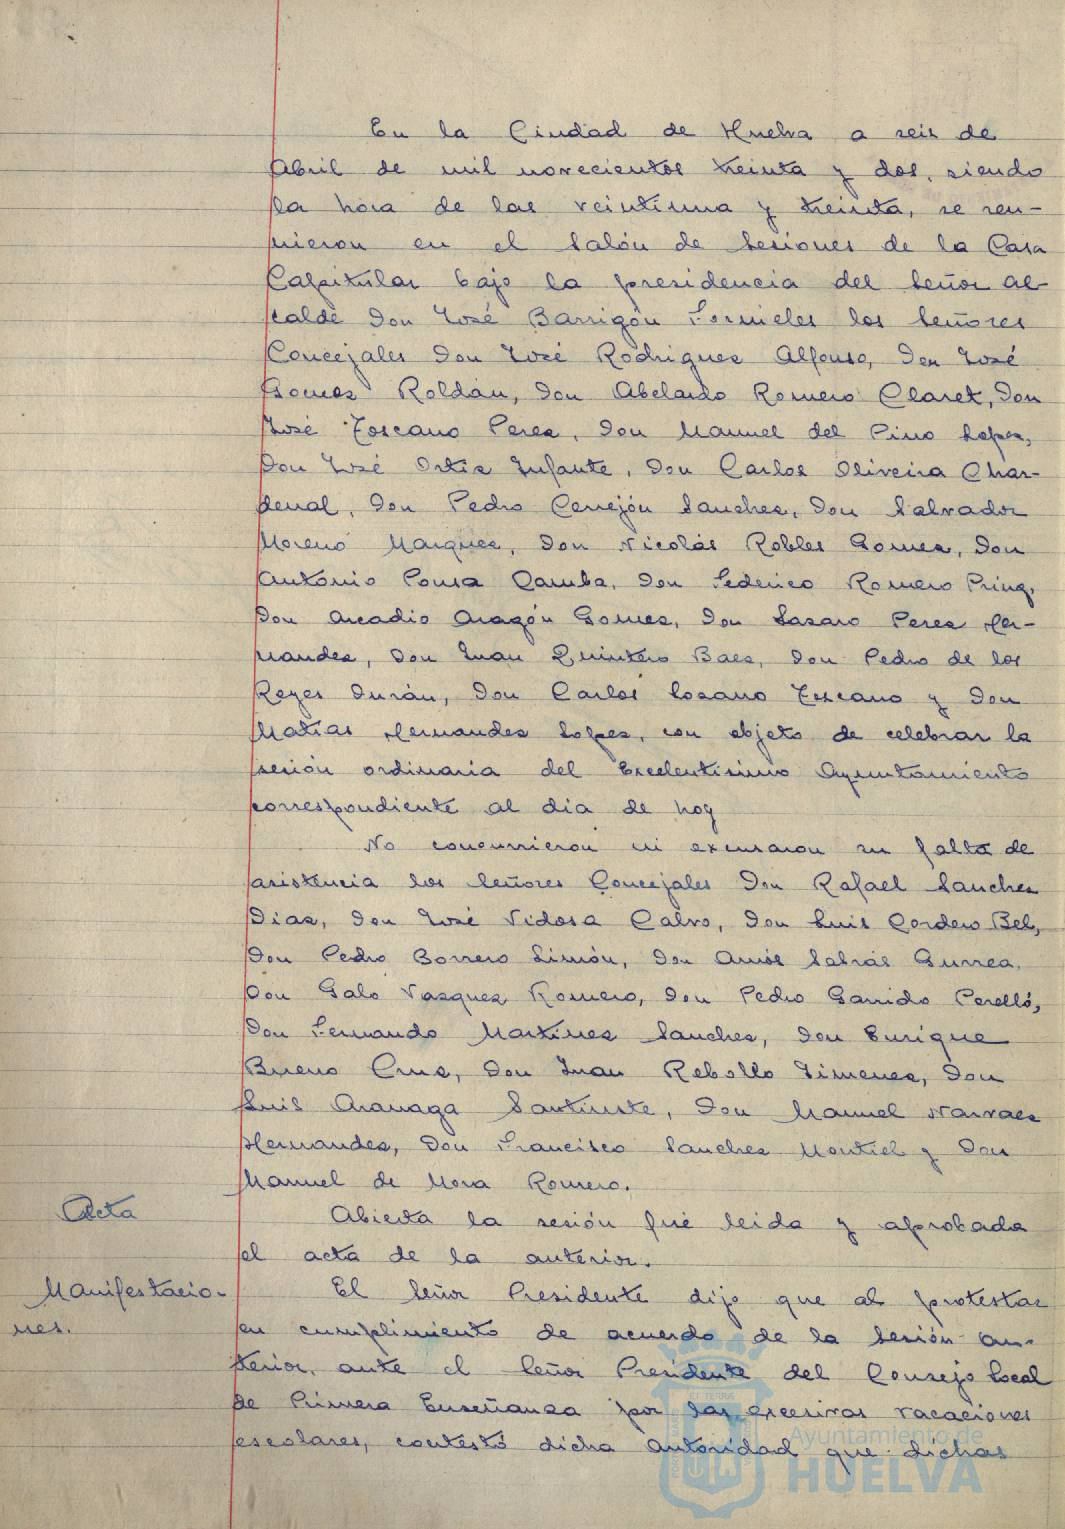 En la Ciudad de Huelva a seis de
Abril de mil novecientos treinta y dos, siendo
la hora de las veintiuna y treinta, se reu-
nieron en el Salón de Sesiones de la Casa
Capitular bajo la presidencia del Señor Al-
calde Don José Barrigón Fornieles los Señores
Concejales Don José Rodrigues Alfonso, Don José
Gomez Roldán, Don Abelardo Romero Claret, Don
José Toscano Perez, Don Manuel del Pino Lopez,
Don José Ortiz Infante, Don Carlos Oliveira Char-
denal, Don Pedro Cerrejón Sanchez, Don Salvador
Moreno Marquez, Don Nicolás Robles Gomez, Don
Antonio Pousa Camba, Don Federico Romero Pring,
Don Arcadio Aragón Gomez, Don Lazaro Perez Fer-
nandez, Don Juan Quintero Baez, Don Pedro de los
Reyes Durán, Don Carlos Lozano Toscano y Don
Matías Fernandez Lopez, con objeto de celebrar la
sesión ordinaria del Excelentísimo Ayuntamiento
correspondiente al día de hoy
No concurrieron ni excusaron su falta de
asistencia los Señores Concejales Don Rafael Sanchez
Diaz, Don José Vidosa Calvo, Don Luis Cordero Bel,
Don Pedro Borrero Limón, Don Amós Sabrás Gurrea,
Don Galo Vazquez Romero, Don Pedro Garrido Perelló,
Don Fernando Martinez Sanchez, Don Enrique
Bueno Cruz, Don Juan Rebollo Jimenez, Don
Luis Aranaga Santiuste, Don Manuel Narvaez
Hernandez, Don Francisco Sanchez Montiel y Don
Manuel de Mora Romero.
Acta
Abierta la sesión fué leida y aprobada
el acta de la anterior.
Manifestacio-
nes.
El Señor Presidente dijo que al protestar
en cumplimiento de acuerdo de la Sesión an-
terior, ante el Señor Presidente del Consejo Local
de Primera Enseñanza por las excesivas vacaciones
escolares, contestó dicha autoridad que dichas
Ayuntamiento de
HUELVA